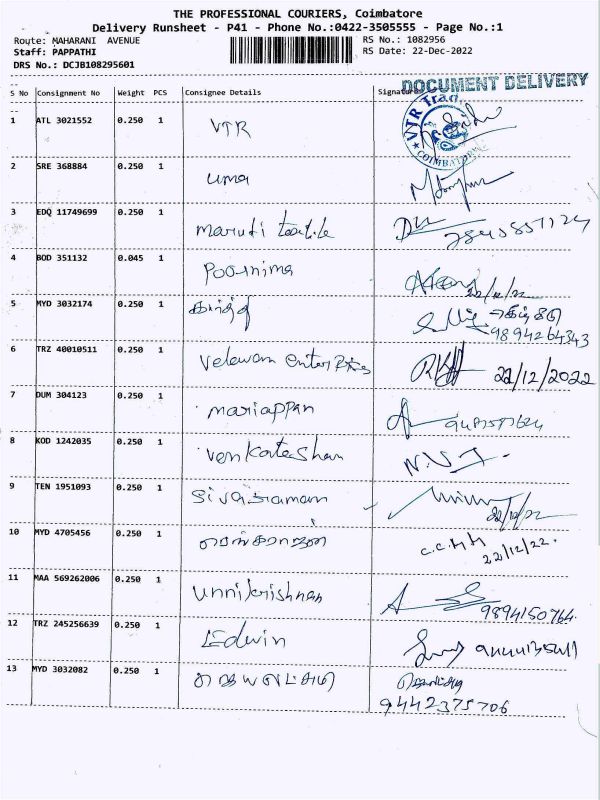 THE PROFESSIONAL COURIERS, Coimbatore
Delivery Runsheet - P41 - Phone No.:0422-3505555 - Page No.:1
Route: MAHARANI AVENUE RS No.: 1082956
Staff: PAPPATHI RS Date: 22-Dec-2022
DRS No.: DCJB108295601
DOCUMENT DELIVERY
S No Consignment No Weight PCS Consignee Details Signature
VTR Trad
COIMBATORE
1 ATL 3021552 0.250 1 VTR
2 SRE 368884 0.250 1 uma
3 EDQ 11749699 0.250 1 maruti textile
4 BOD 351132 0.045 1 Poornima 22/12/22
5 MYD 3032174 0.250 1
9894264343
6 TRZ 40010511 0.250 1 velavam enterprises 22/12/2022
7 DUM 304123 0.250 1 mariappan
8 KOD 1242035 0.250 1 venkateshan N.V.T.
9 TEN 1951093 0.250 1 sivaraman
22/12/22
10 MYD 4705456 0.250 1 ரெங்கராஜன்
22/12/22.
11 MAA 569262006 0.250 1 unnikrishnan
9894150764
12 TRZ 245256639 0.250 1 Edwin
13 MYD 3032082 0.250 1
9442375706